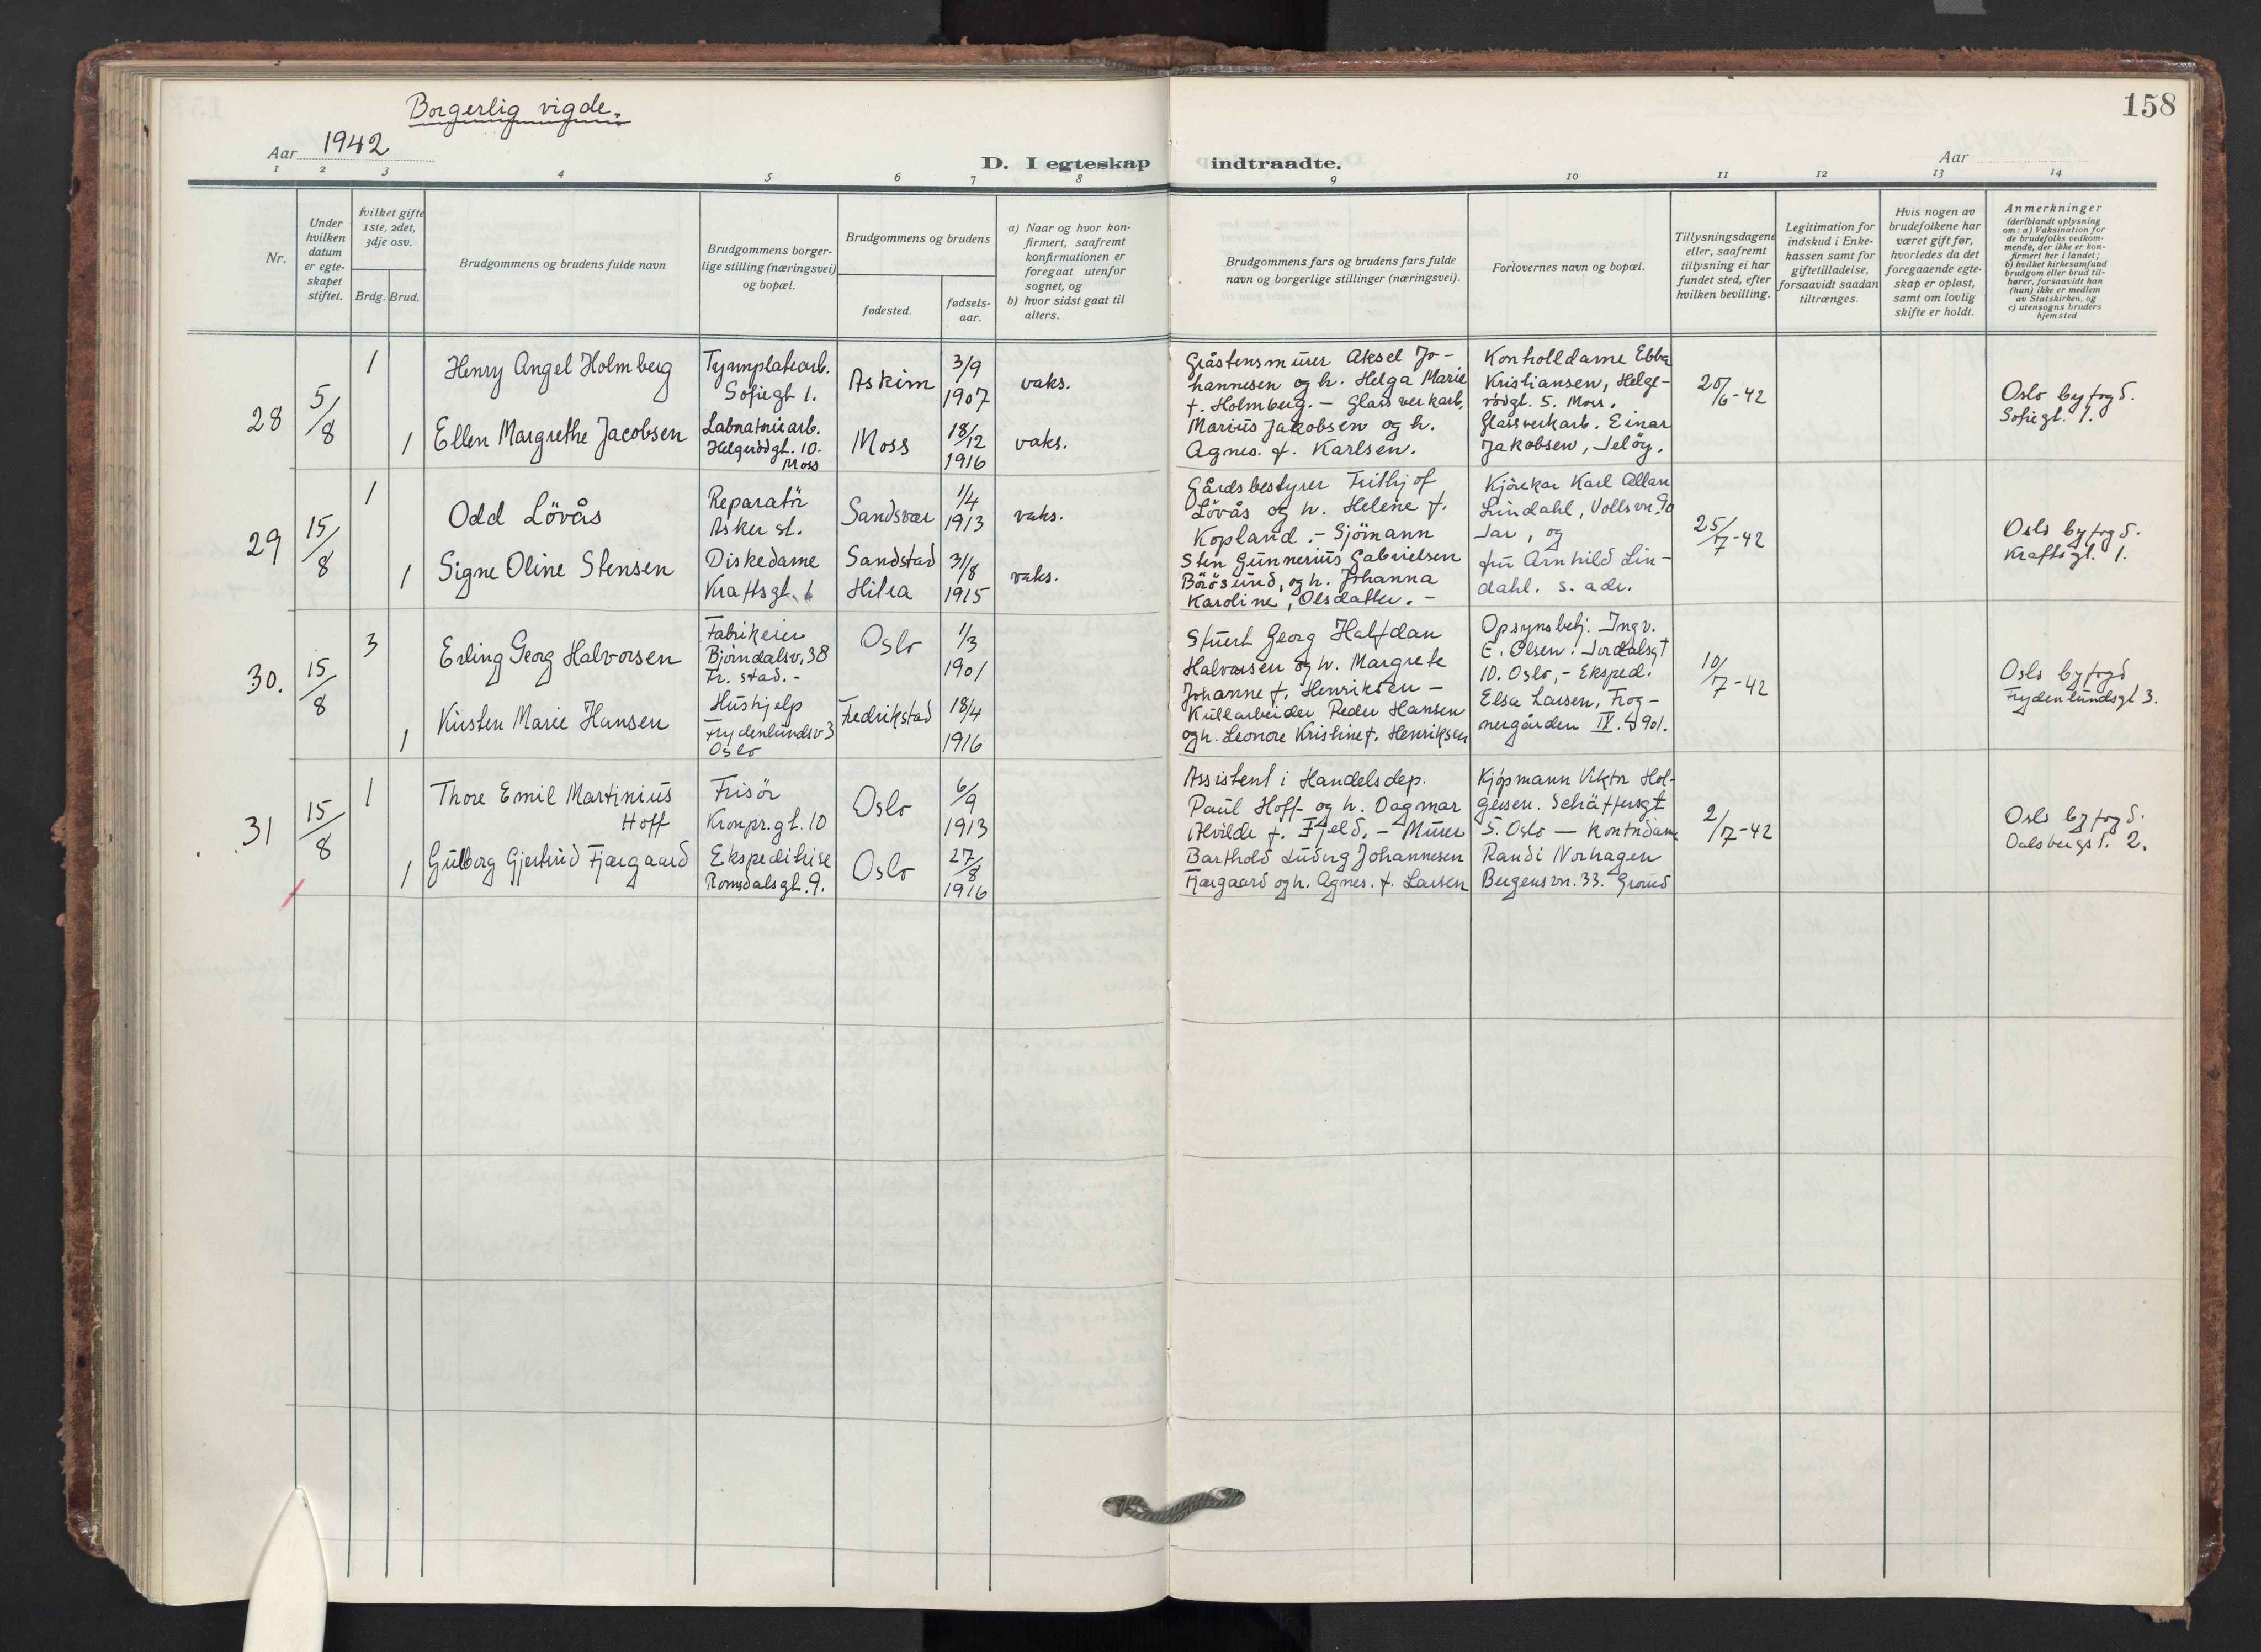 Borgerlig vigde.
158
Aar 1942
D. I egteskap indtraadte.
Aar
1 2 3 4 5 6 7 8 9 10 11 12 13 14
Nr.
Under hvilken datum er egteskapet stiftet.
hvilket gifte 1ste, 2det, 3dje osv.
Brdg. Brud.
Brudgommens og brudens fulde navn
Brudgommens borgerlige stilling (næringsvei) og bopæl.
Brudgommens og brudens
fødested.
fødselsaar.
a) Naar og hvor konfirmert, saafremt konfirmationen er foregaat utenfor sognet, og
b) hvor sidst gaat til alters.
Brudgommens fars og brudens fars fulde navn og borgerlige stillinger (næringsvei).
Forlovernes navn og bopæl.
Tillysningsdagene eller, saafremt tillysning ei har fundet sted, efter hvilken bevilling.
Legitimation for indskud i Enkekassen samt for giftetilladelse, forsaavidt saadan tiltrænges.
Hvis nogen av brudefolkene har været gift før, hvorledes da det foregaaende egteskap er opløst, samt om lovlig skifte er holdt.
Anmerkninger
(deriblandt oplysning om: a) Vaksination for de brudefolks vedkommende, der ikke er konfirmert her i landet; b) hvilket kirkesamfund brudgom eller brud tilhører, forsaavidt han (hun) ikke er medlem av Statskirken, og c) utensogns bruders hjemsted
28
5/8
1
Henry Angel Holmberg
Sofiegt 1.
Askim
3/9 1907
vaks.
1
Ellen Margrethe Jacobsen
Laboratoriearb.
Helgerödgt. 10.
Moss
Moss
18/12 1916
vaks.
Gråstensmurer Aksel Jo-
hannesen og h. Helga Marie
f. Holmberg. – Glassverkarb.
Marius Jakobsen og h.
Agnes. f. Karlsen.
Kontrolldame Ebba
Kristiansen, Helge-
rödgt. 5. Moss.
Glassverkarb. Einar
Jakobsen, Jelöy.
20/6-42
Oslo byfogd.
Sofiegt. 1.
29
15/8
1
Odd Lövås
Reparatör
Asker st.
Sandsvær
1/4 1913
vaks.
1
Signe Oline Stensen
Diskedame
Kraftsgt. 1
Sandstad
Hitra
31/8 1915
vaks.
Gårdsbestyrer Frithjof
Lövås og h. Helene f.
Kopland. – Sjömann
Sten Gunnerius Gabrielsen
Börösund, og h. Johanna
Karoline, Olsdatter. –
Kjörekar Karl Allan
Lindahl, Vollsvn. 90
Jar, og
fru Arnhild Lin-
dahl. s. adr.
25/7-42
Oslo byfogd.
Kraftsgt. 1.
30.
15/8
3
Erling Georg Halvorsen
Fabrikeier
Bjørndalsv. 38
Fr. stad. –
Oslo
1/3 1901
1
Kirsten Marie Hansen
Hushjelp
Frydenlundsv 3
Oslo
Fredrikstad
18/4 1916
Stuert Georg Halfdan
Halvorsen og h. Margrete
Johanne f. Henriksen –
Kullarbeider Peder Hansen
og h. Leonore Kristine f. Henriksen
Opsynsbetj. Ingv.
E. Olsen. Jordalsgt
10. Oslo, – Eksped.
Elsa Larsen, Frog-
nergården IV. 901.
10/7-42
Oslo byfogd
Frydenlundsgt 3.
31
15/8
1
Thore Emil Martinius
Hoff
Frisör
Kronpr.gt. 10
Oslo
6/9 1913
1
Gulborg Gjertrud Fjærgaard
Ekspeditrise
Romsdalsgt. 9.
Oslo
27/8 1916
Assistent i Handelsdep.
Paul Hoff og h. Dagmar
Alvilde f. Fjeld. – Murer
Barthold Ludvig Johannesen
Fjærgaard og h. Agnes. f. Larsen
Kjøpmann Viktor Hol-
gersen. Schäffersgt
5. Oslo – Kontordame
Randi Norhagen
Bergensvn. 33. Grorud
2/7-42
Oslo byfogd.
Dalsbergst. 2.